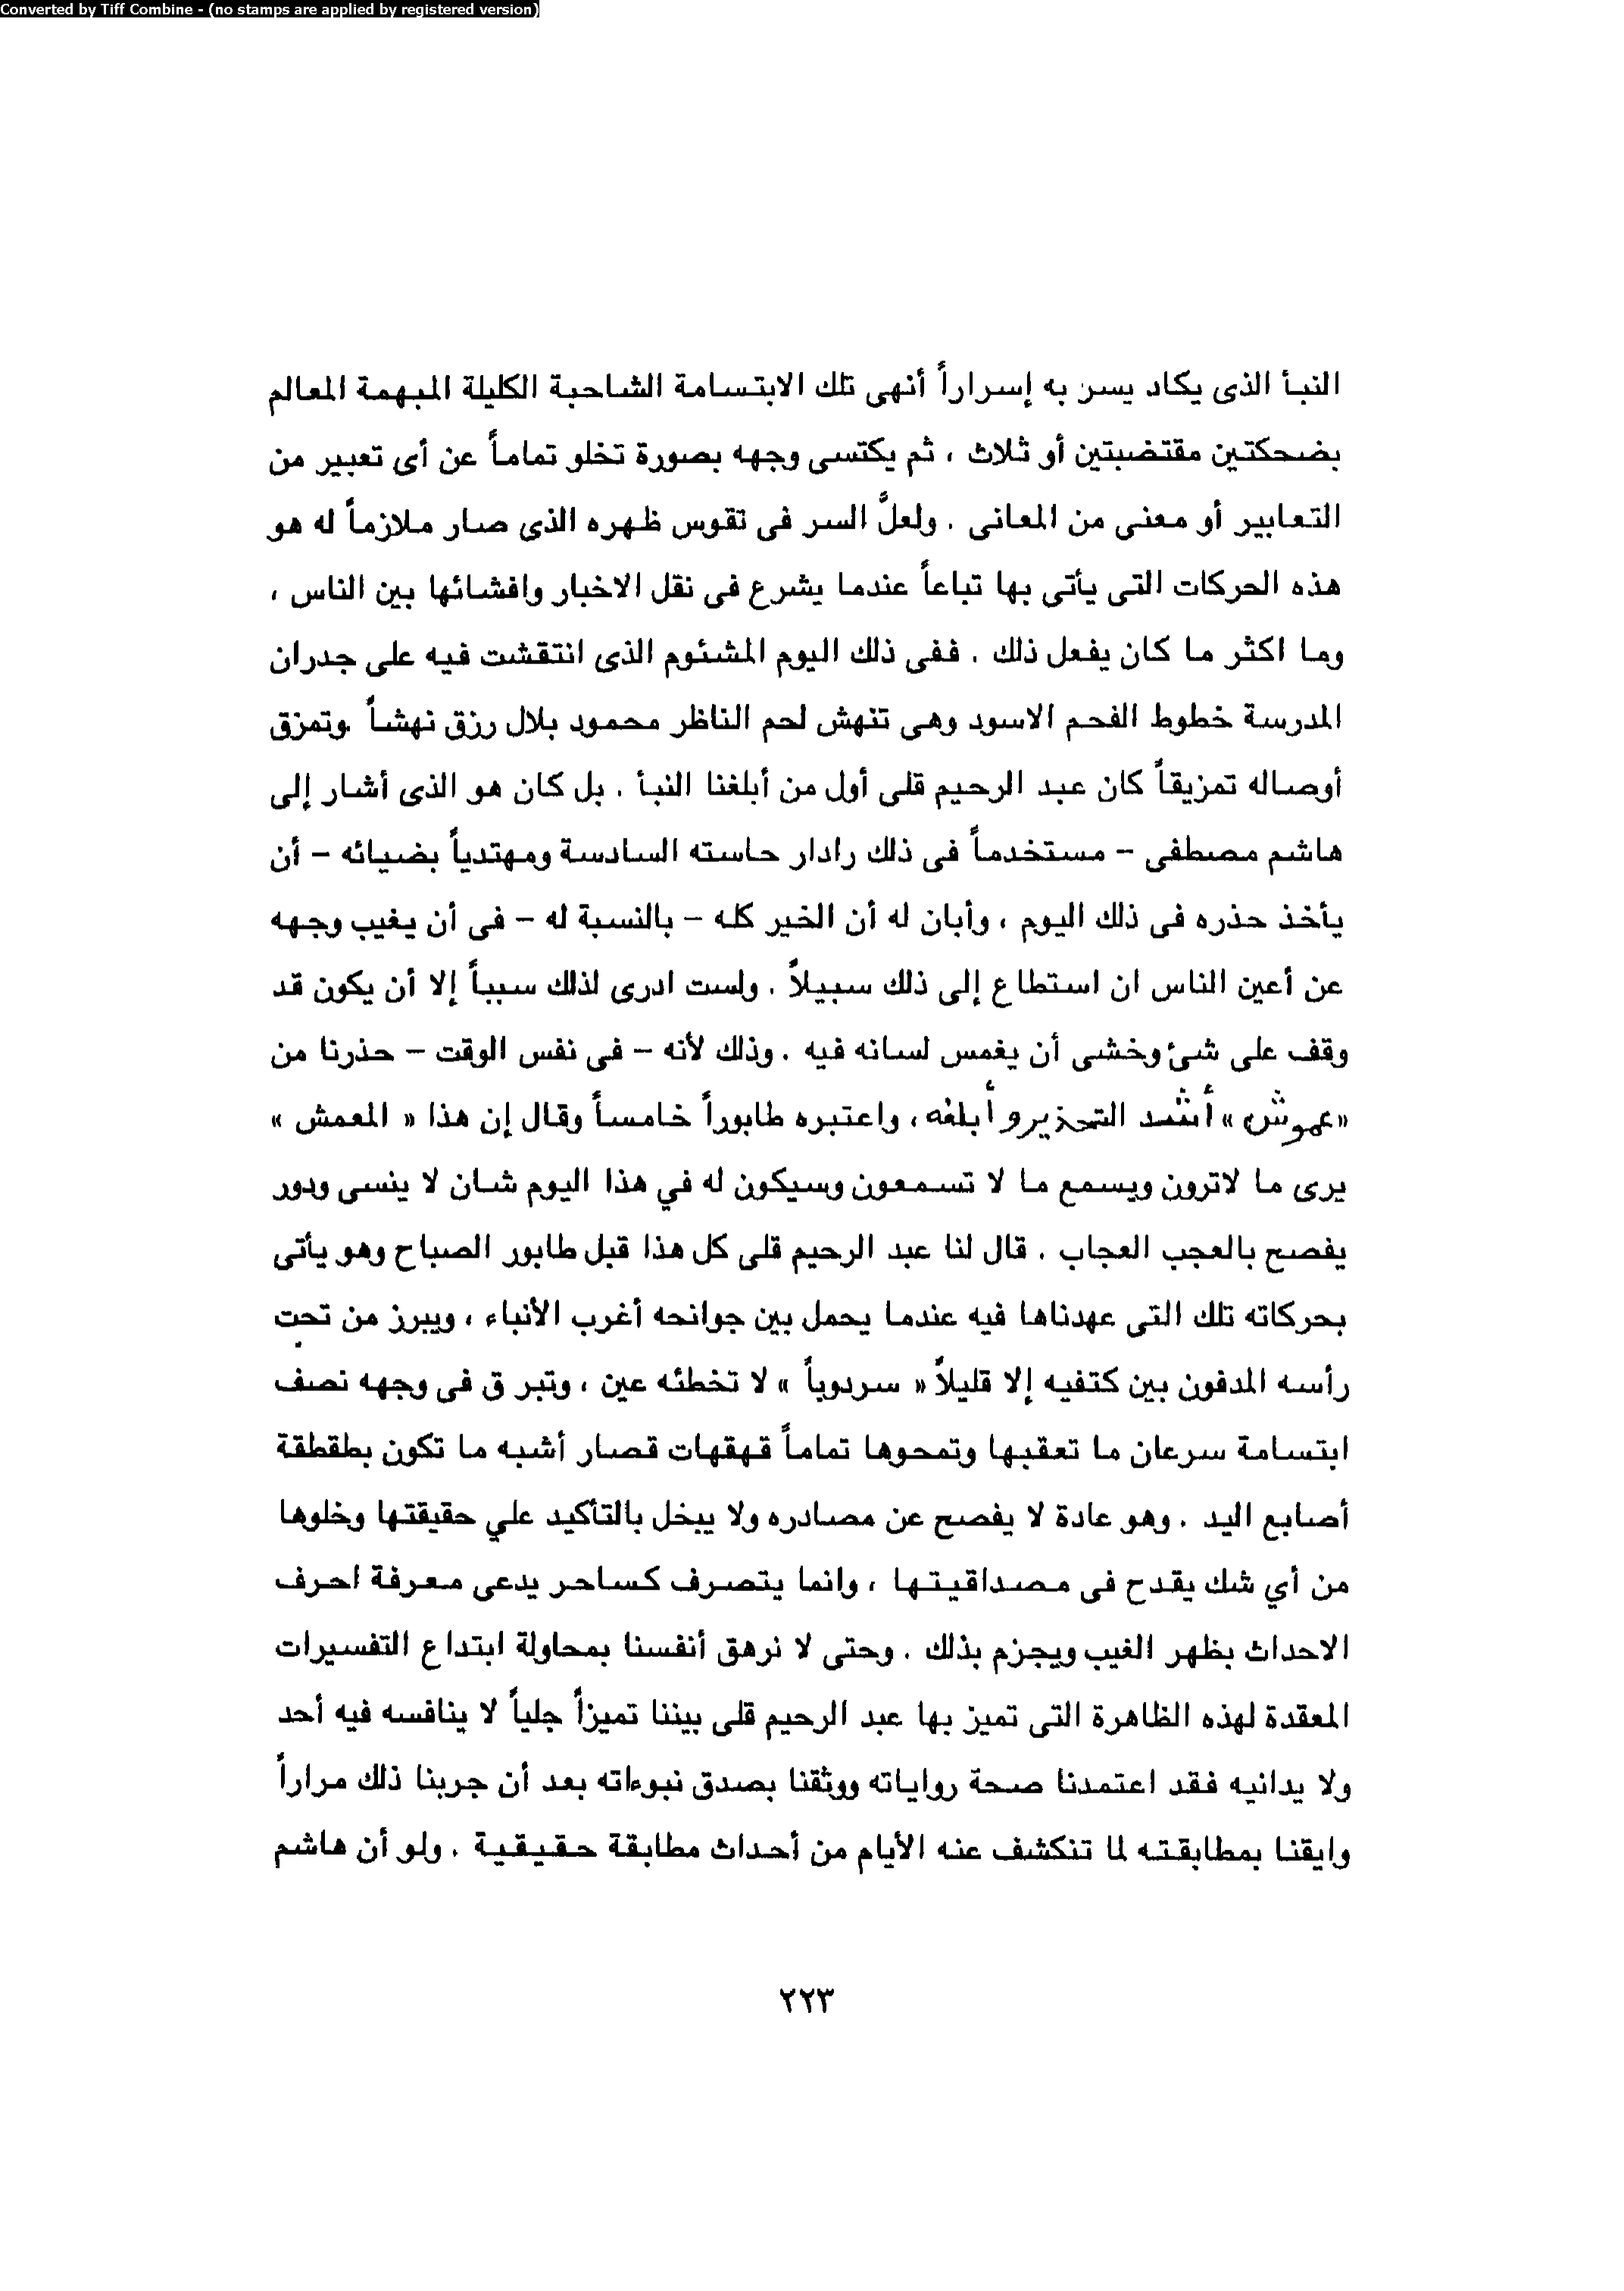 Converted by Tiff Combine - (no stamps are applied by registered version)
النبأ الذى يكاد يسر به إسراراً أنهى تلك الابتسامة الشاحبة الكليلة المبهمة المعالم
بضحكتين مقتضبتين أو ثلاث ، ثم يكتسى وجهه بصورة تخلو تماماً عن أى تعبير من
التعابير أو معنى من المعانى . ولعلَّ السر فى تقوس ظهره الذى صار ملازماً له هو
هذه الحركات التى يأتى بها تباعاً عندما يشرع فى نقل الاخبار وافشائها بين الناس ،
وما اكثر ما كان يفعل ذلك . ففى ذلك اليوم المشئوم الذى انتقشت فيه على جدران
المدرسة خطوط الفحم الاسود وهى تنهش لحم الناظر محمود بلال رزق نهشاً .وتمزق
أوصاله تمزيقاً كان عبد الرحيم قلى أول من أبلغنا النبأ . بل كان هو الذى أشار إلى
هاشم مصطفى – مستخدماً فى ذلك رادار حاسته السادسة ومهتدياً بضيائه – أن
يأخذ حذره فى ذلك اليوم ، وأبان له أن الخير كله – بالنسبة له – فى أن يغيب وجهه
عن أعين الناس ان استطاع إلى ذلك سبيلاً . ولست ادرى لذلك سبباً إلا أن يكون قد
وقف على شئ وخشى أن يغمس لسانه فيه . وذلك لأنه – فى نفس الوقت – حذرنا من
«عموش» أشد التحذير وأبلغه ، واعتبره طابوراً خامساً وقال إن هذا « المعمش »
يرى ما لاترون ويسمع ما لا تسمعون وسيكون له في هذا اليوم شان لا ينسى ودور
يفصح بالعجب العجاب . قال لنا عبد الرحيم قلى كل هذا قبل طابور الصباح وهو يأتى
بحركاته تلك التى عهدناها فيه عندما يحمل بين جوانحه أغرب الأنباء ، ويبرز من تحت
رأسه المدفون بين كتفيه إلا قليلاً « سردوباً » لا تخطئه عين ، وتبر ق فى وجهه نصف
ابتسامة سرعان ما تعقبها وتمحوها تماماً قهقهات قصار أشبه ما تكون بطقطقة
أصابع اليد . وهو عادة لا يفصح عن مصادره ولا يبخل بالتأكيد علي حقيقتها وخلوها
من أي شك يقدح فى مصداقيتها ، وانما يتصرف كساحر يدعى معرفة احرف
الاحداث بظهر الغيب ويجزم بذلك . وحتى لا نرهق أنفسنا بمحاولة ابتداع التفسيرات
المعقدة لهذه الظاهرة التى تميز بها عبد الرحيم قلى بيننا تميزاً جلياً لا ينافسه فيه أحد
ولا يدانيه فقد اعتمدنا صحة رواياته ووثقنا بصدق نبوءاته بعد أن جربنا ذلك مراراً
وايقنا بمطابقته لما تنكشف عنه الأيام من أحداث مطابقة حقيقية . ولو أن هاشم
٢٢٣